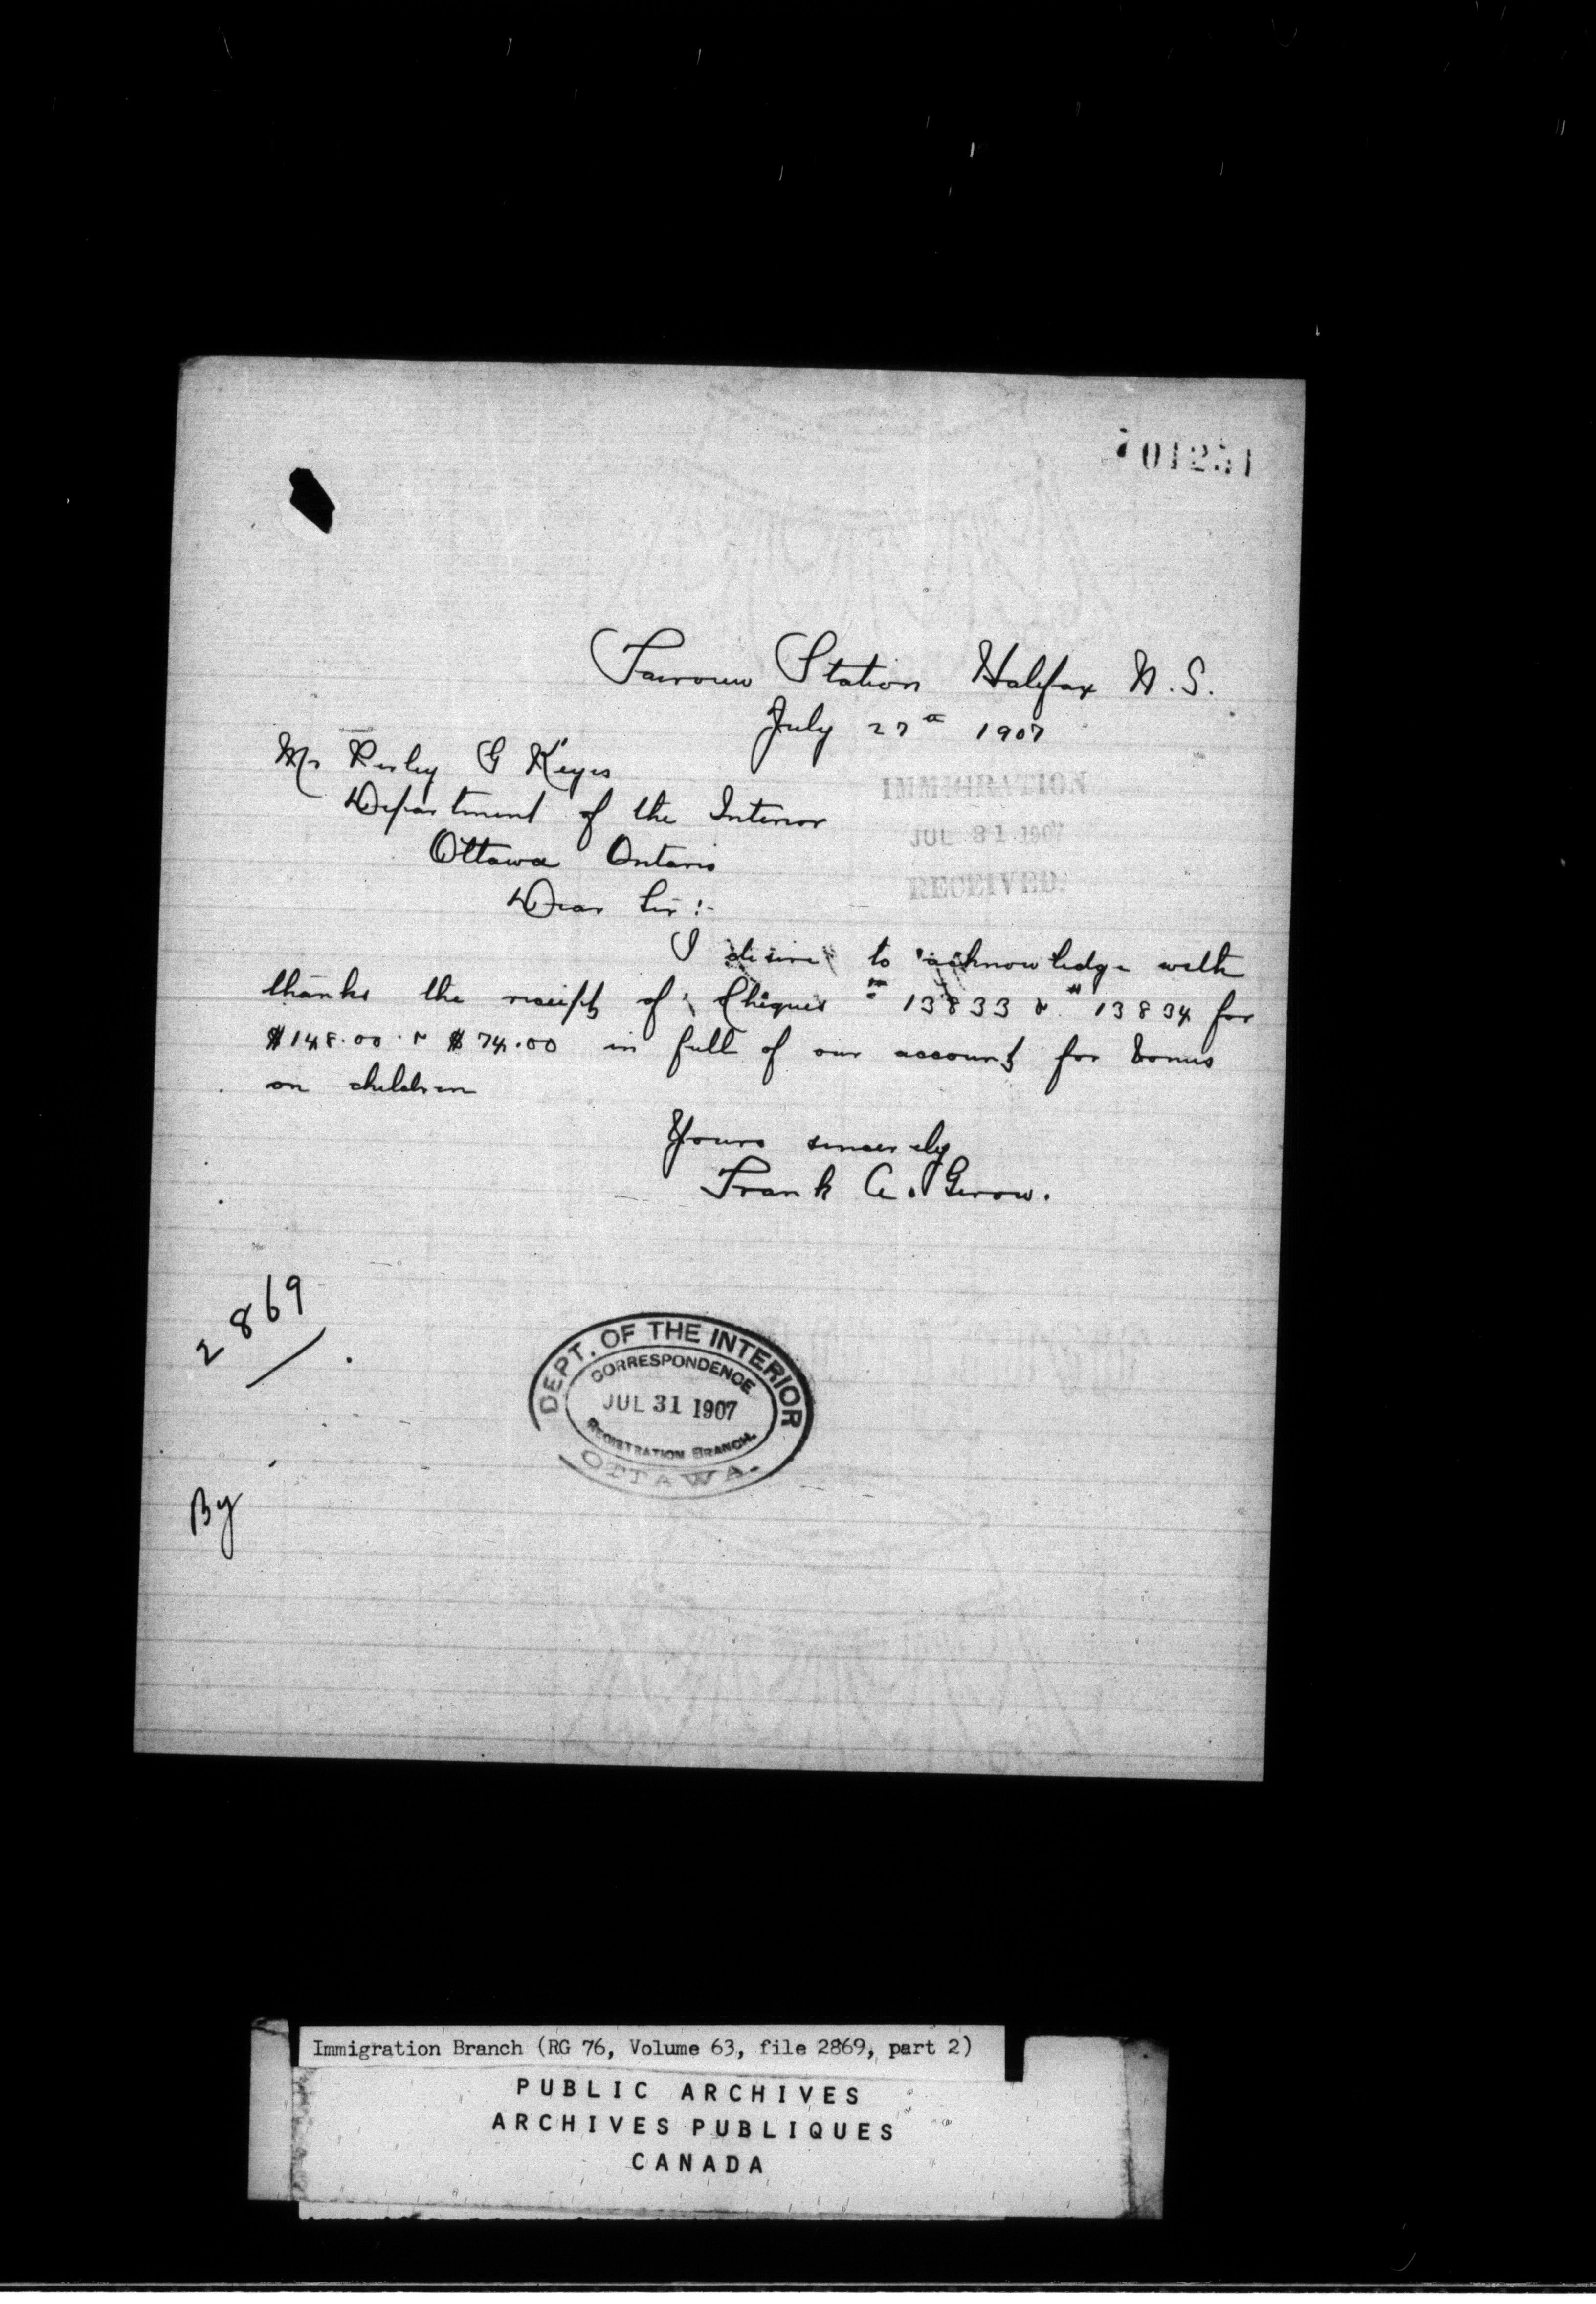 Fairview Station Halifax N.S.
July 27th 1907
Mr Perley G Keyes
Department of the Interior
Ottawa Ontario
IMMIGRATION
JUL 31 1907
RECEIVED.
Dear Sir :-
I desire to acknowledge with
thanks the receipt of Cheques # 13833 & # 13834 for
$148.00 & $74.00 in full of our account for bonus
on children
Yours sincerely
Frank A. Gerow.
2869
DEPT. OF THE INTERIOR
CORRESPONDENCE
JUL 31 1907
REGISTRATION BRANCH.
OTTAWA.
By
Immigration Branch (RG 76, Volume 63, file 2869, part 2)
PUBLIC ARCHIVES
ARCHIVES PUBLIQUES
CANADA